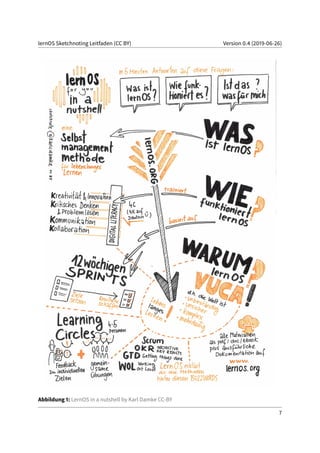 lernOS Sketchnoting Leitfaden (CC BY)
Version 0.4 (2019-06-26)
in 5 Minuten Antworten auf diese Fragen:
lernOS
for you
in a
nutshell
Was ist
lernOS?
Wie funk-
tioniert es?
Ist das ?
was für mich
eine
Selbst
management
methode
für lebenslanges
Lernen
lernOS.ORG
WAS
ist lernOS ?
trainiert
WIE
funktioniert
lernOS ?
basiert auf
Kreativität & Innovation
Kritisches Denken
& Problemlösen
Kommunikation
Kollaboration
DIGITAL LITERACY
4C
WARUM
lernOS ?
VUCA!
weil die Welt ist
unsicher
komplex
mehrdeutig
12wöchigen
SPRINTS
Ziele
setzen
Lebens
langes
Lernen
Learning
Circles
4-5
Personen
Feedback
zu individuellen
Zielen
gemein-
same
Übungen
Scrum
OKR OBJECTIVE
KEY RESULTS
GTD Getting things done
WOL Working
out Loud
LernOS erklärt
die Methoden
hinter diesen BUZZWORDS
alle Materialien
als pdf / doc / ebook
plus ausführliche
Dokumentation auf
www.
lernos.org
Abbildung 1: LernOS in a nutshell by Karl Damke CC-BY
7